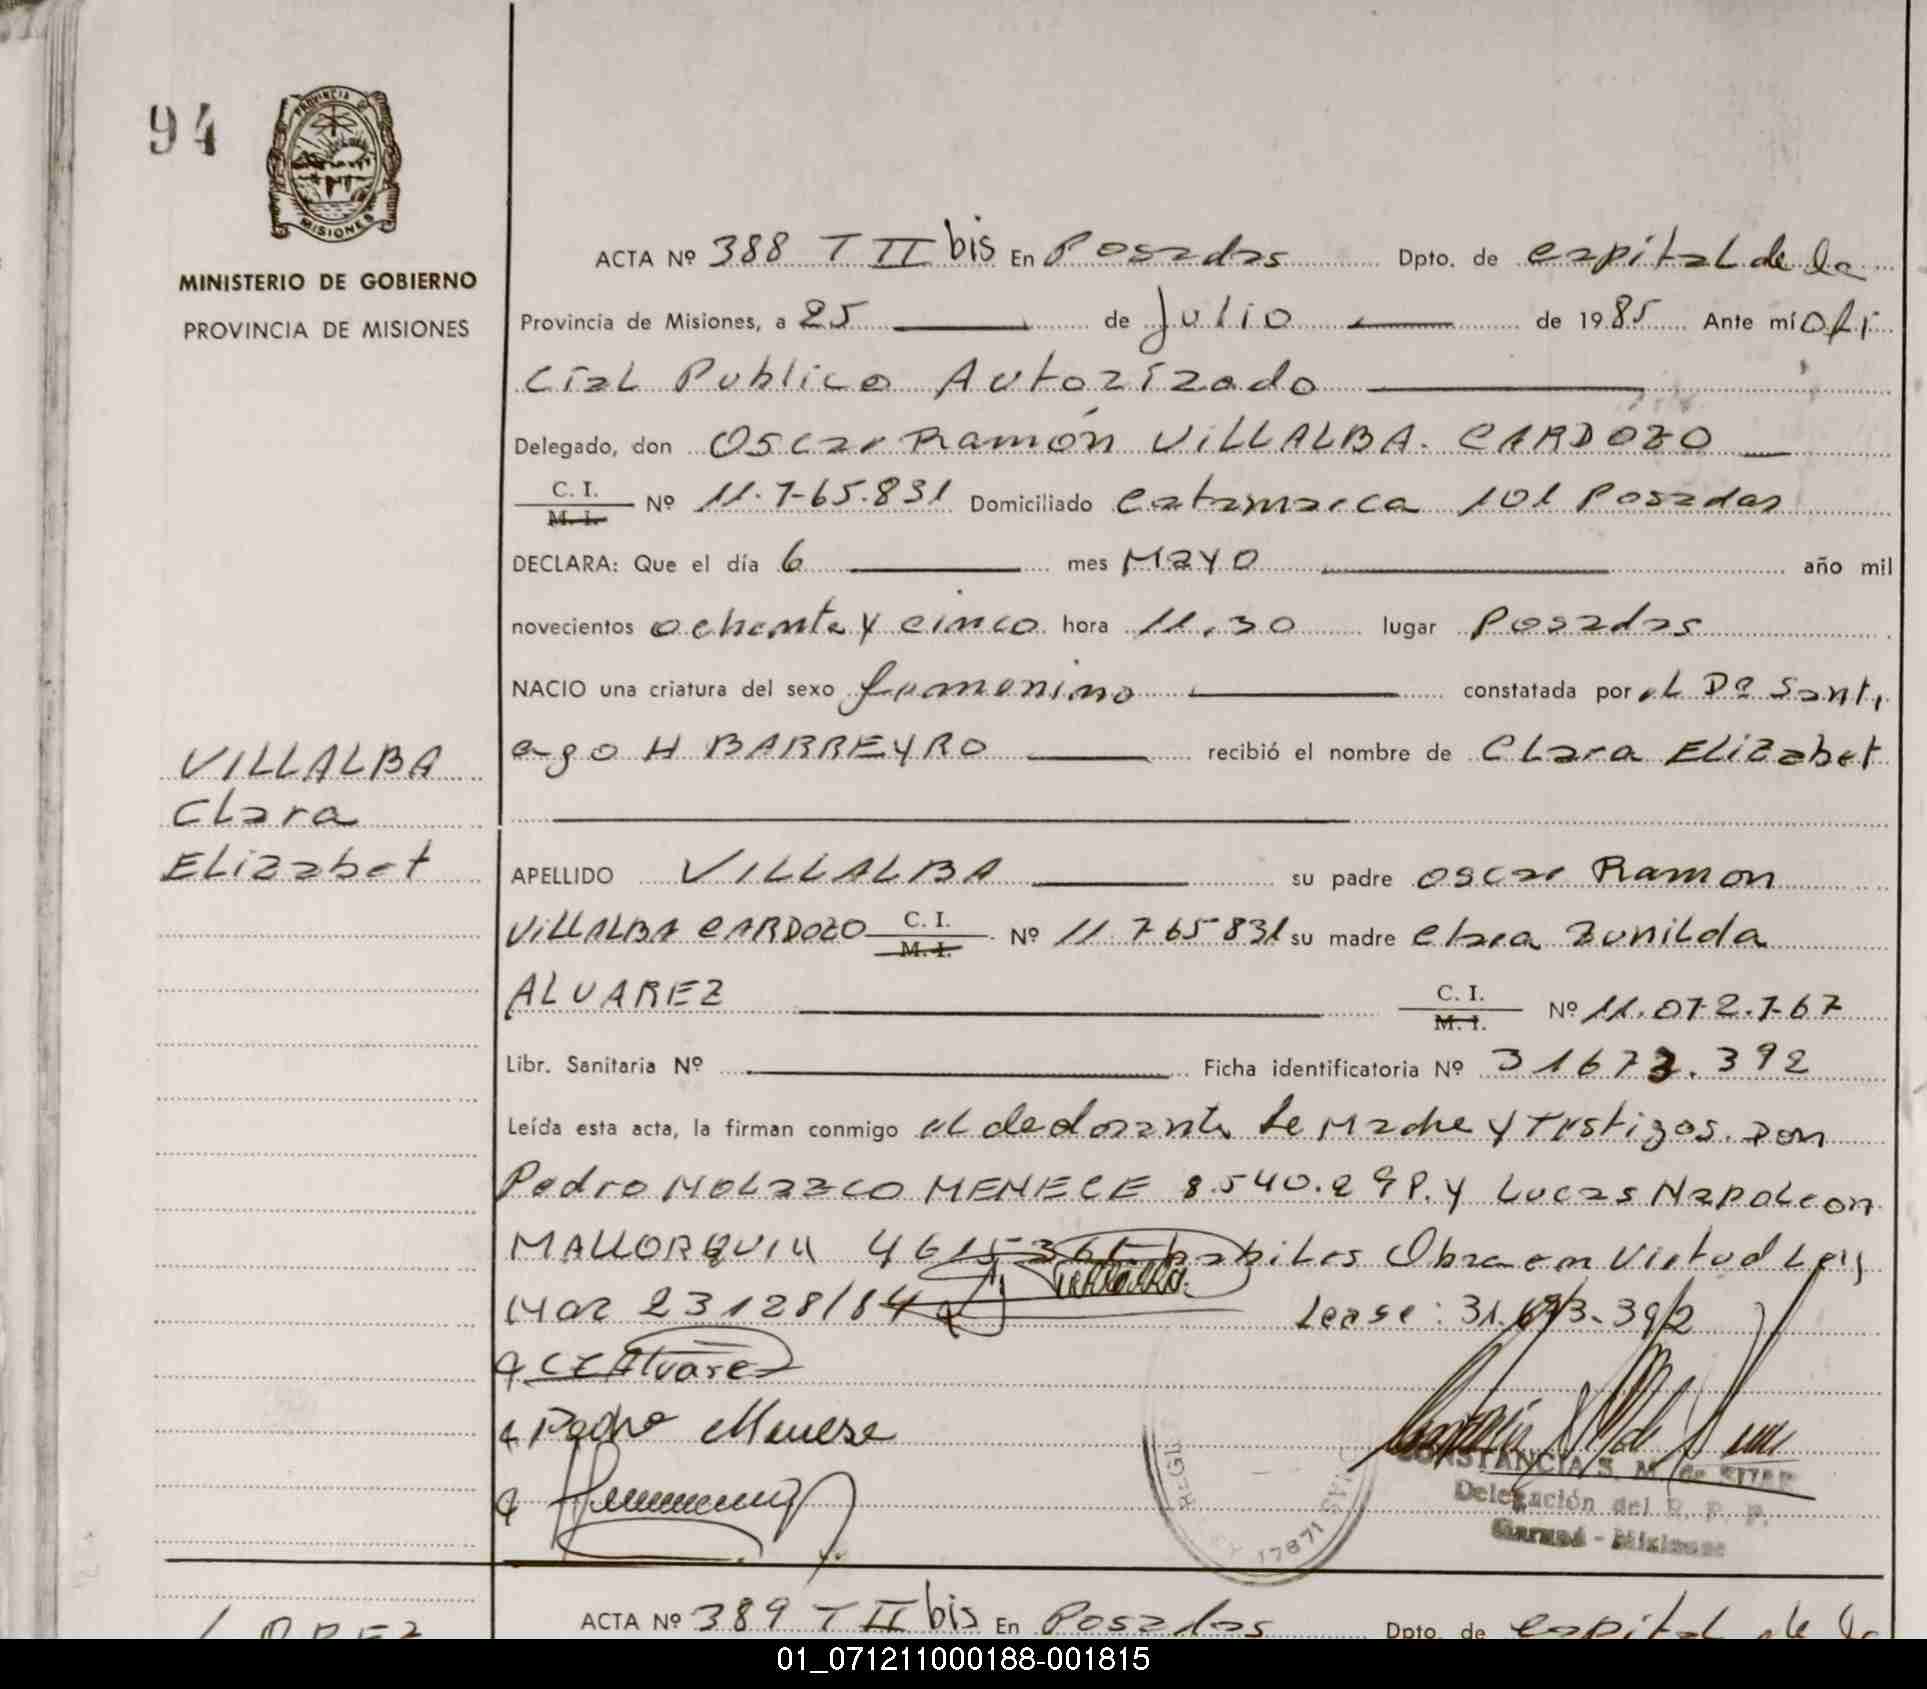 94
PROVINCIA DE
MISIONES
MINISTERIO DE GOBIERNO
PROVINCIA DE MISIONES
ACTA Nº 388 T II bis En Posadas Dpto. de capital de la
Provincia de Misiones, a 25 de Julio de 1985 Ante mí Ofi
cial Publico Autorizado
Delegado, don Oscar Ramón VILLALBA. CARDOZO
C. I.
M. I. Nº 11.765.831 Domiciliado Catamarca 101 Posadas
DECLARA: Que el día 6 mes Mayo año mil
novecientos ochenta y cinco hora 11,30 lugar Posadas
NACIO una criatura del sexo femenino constatada por el Dº Santi
ago H BARREYRO recibió el nombre de Clara Elizabet
VILLALBA
Clara
Elizabet
APELLIDO VILLALBA su padre Oscar Ramon
VILLALBA CARDOZO C. I.
M. I. Nº 11 765831 su madre Clara Zunilda
ALVAREZ C. I.
M. I. Nº 11.072.767
Libr. Sanitaria Nº Ficha identificatoria Nº 31673.392
Leída esta acta, la firman conmigo el declarante la Madre y Testigos. Don
Pedro MENECE 8.540.298. y Lucas Napoleon
MALLORQUIN 4615361 habiles Obra en Virtud Ley
Nar 23128/84 Lease: 31.673.392
CZAlvarez
Pedro Menese
CONSTANCIA S. M. de
Delegación del R. P. P.
Garupá - Misiones
17871
ACTA Nº 389 T II bis En Posadas Dpto. de capital de la
LOPEZ
01_071211000188-001815